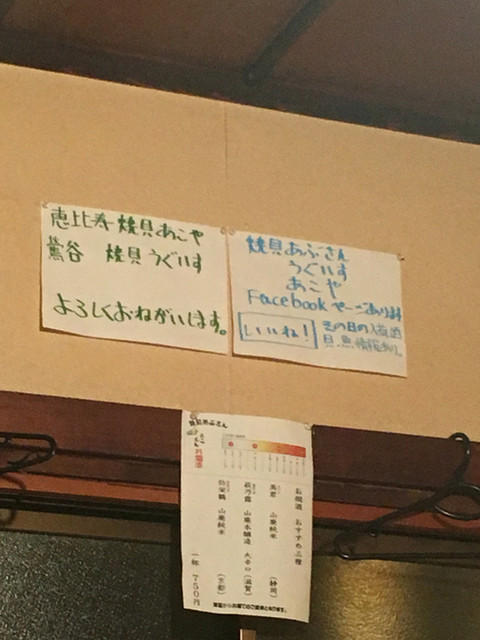 恵比寿 焼貝あこや
鶯谷 焼貝うぐいす
よろしくおねがいします。
焼貝あぶさん
うぐいす
あこや
Facebookページあります
いいね！
その日の入荷酒
貝魚情報あり。
焼貝あぶさん
お燗酒 おすすめ三種
山廃純米 (静岡)
萩乃露 山廃本醸造 火辛口 (滋賀)
弥栄鶴 山廃純米 (京都)
一杯 750円